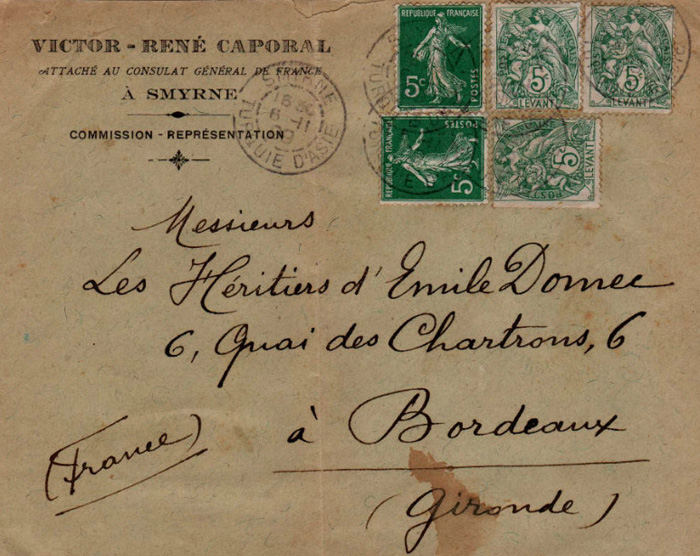 VICTOR - RENÉ CAPORAL
ATTACHÉ AU CONSULAT GÉNÉRAL DE FRANCE
À SMYRNE
COMMISSION - REPRÉSENTATION
SMYRNE
6 -11
TURQUIE D'ASIE
REPUBLIQUE FRANÇAISE
5c
POSTES
5c
LEVANT
5c
LEVANT
REPUBLIQUE FRANÇAISE
5c
POSTES
5
LEVANT
Messieurs
Les Héritiers d'Emile Domec
6, Quai des Chartrons, 6
à Bordeaux
(France)
(Gironde)